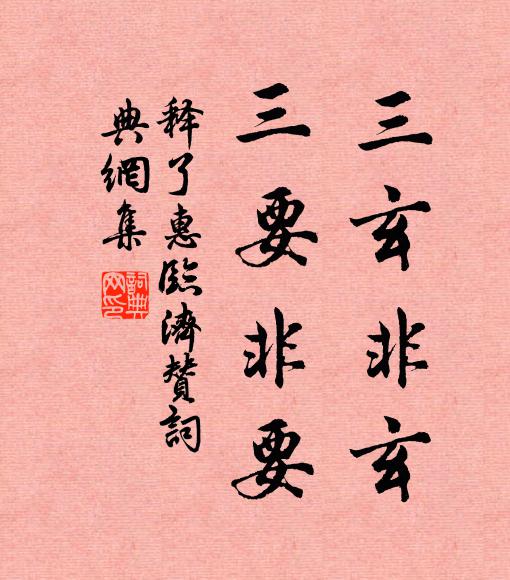 三玄非玄
三要非要
释了惠臨濟贊詞
典網集
詞典
网印